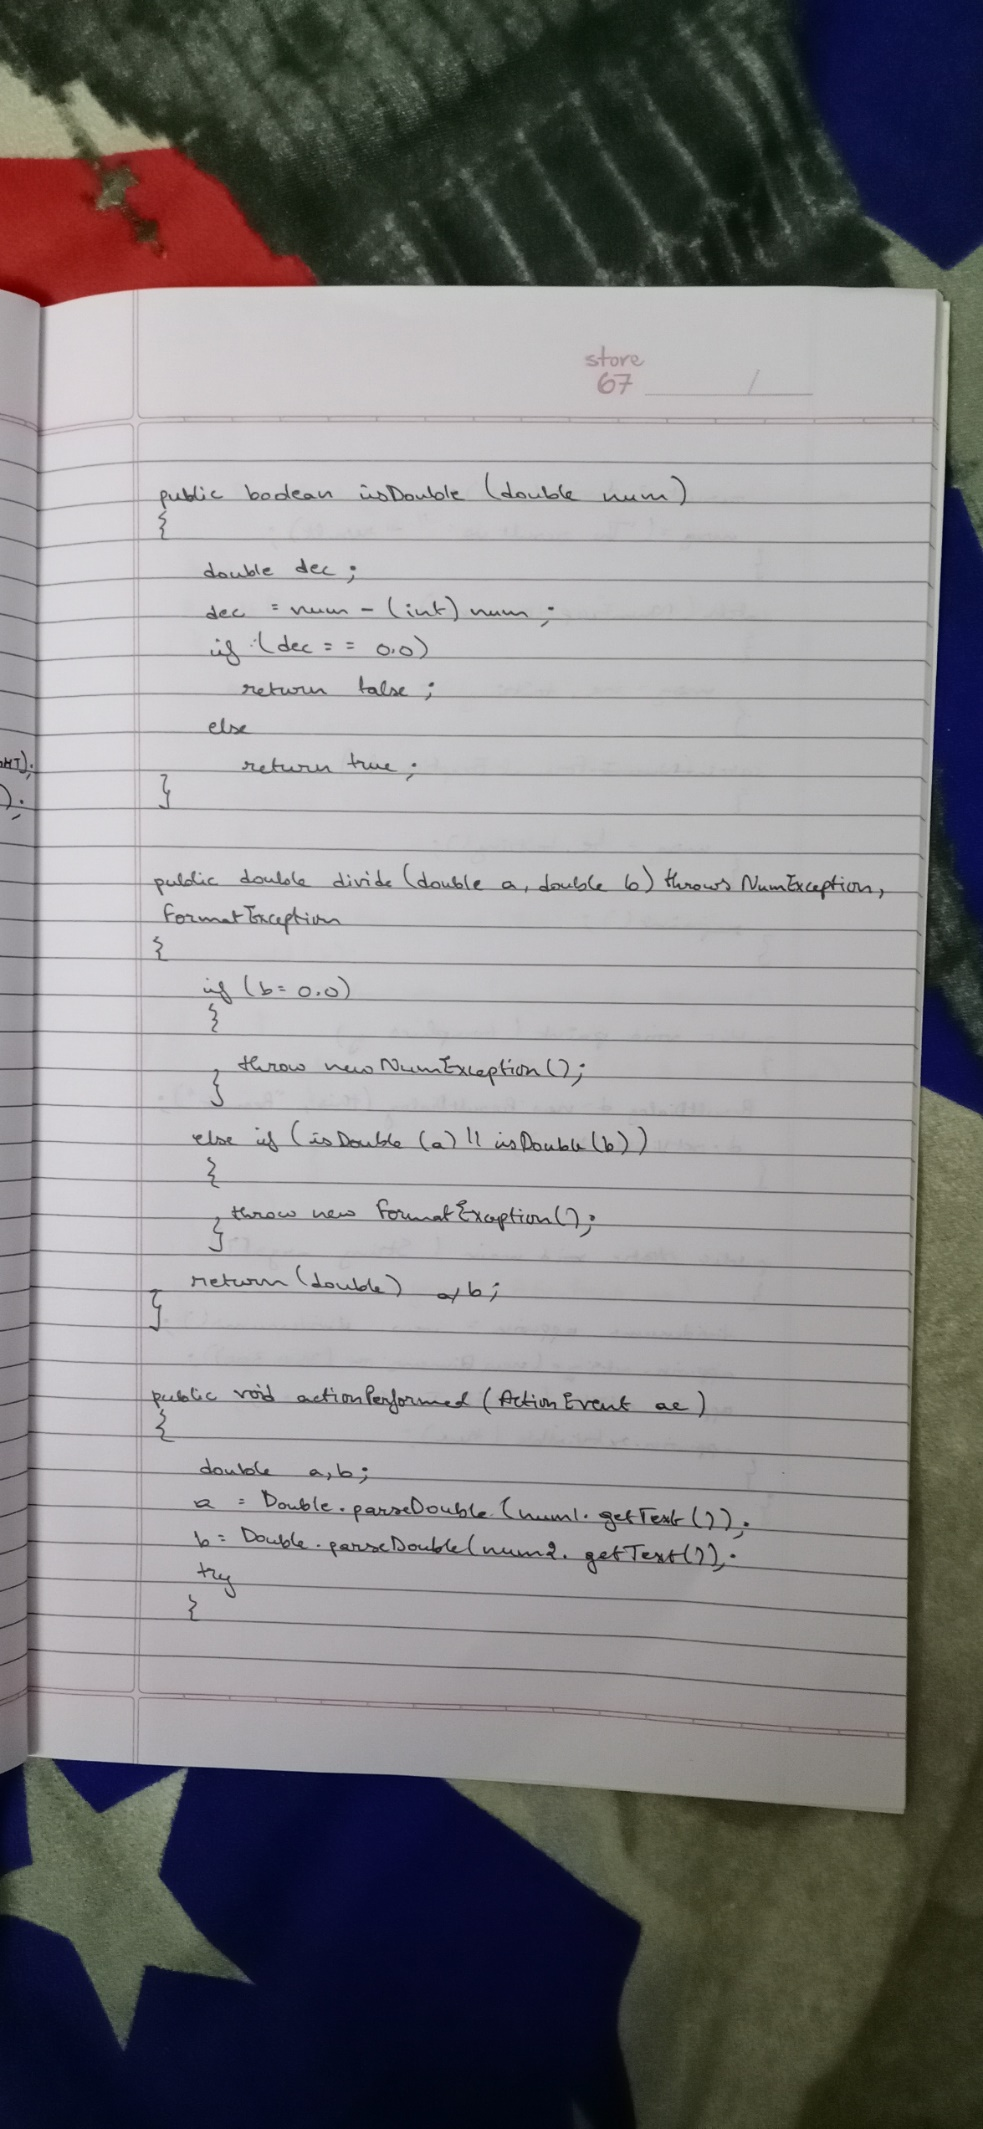 store
67 /
public boolean isDouble (double num)
{
double dec ;
dec = num - (int) num ;
if (dec = = 0.0)
return false ;
else
return true ;
}
public double divide (double a, double b) throws NumException,
FormatException
{
if (b= 0.0)
{
throw new NumException ();
}
else if (isDouble (a) || isDouble (b))
{
throw new FormatException();
}
return (double) a/b;
}
public void actionPerformed (ActionEvent ae)
{
double a,b;
a = Double.parseDouble (num1. getText ());
b = Double.parseDouble (num2. getText ());
try
{
);